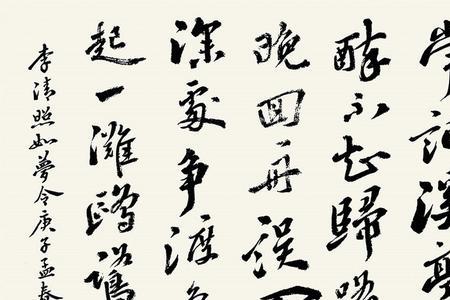 常記溪亭
醉不知歸路
晚回舟誤
深處爭渡
起一灘鷗鷺
李清照如夢令庚子孟春